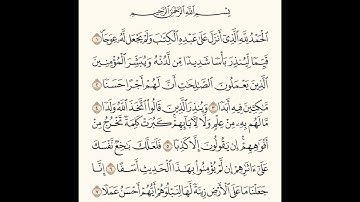 بِسْمِ ٱللَّهِ ٱلرَّحْمَٰنِ ٱلرَّحِيمِ
ٱلْحَمْدُ لِلَّهِ ٱلَّذِىٓ أَنزَلَ عَلَىٰ عَبْدِهِ ٱلْكِتَٰبَ وَلَمْ يَجْعَل لَّهُۥ عِوَجَا ۜ ١
قَيِّمًا لِّيُنذِرَ بَأْسًا شَدِيدًا مِّن لَّدُنْهُ وَيُبَشِّرَ ٱلْمُؤْمِنِينَ
ٱلَّذِينَ يَعْمَلُونَ ٱلصَّٰلِحَٰتِ أَنَّ لَهُمْ أَجْرًا حَسَنًا ٢
مَّٰكِثِينَ فِيهِ أَبَدًا ٣ وَيُنذِرَ ٱلَّذِينَ قَالُوا۟ ٱتَّخَذَ ٱللَّهُ وَلَدًا ٤
مَّا لَهُم بِهِۦ مِنْ عِلْمٍ وَلَا لِءَابَآئِهِمْ ۚ كَبُرَتْ كَلِمَةً تَخْرُجُ مِنْ
أَفْوَٰهِهِمْ ۚ إِن يَقُولُونَ إِلَّا كَذِبًا ٥ فَلَعَلَّكَ بَٰخِعٌ نَّفْسَكَ
عَلَىٰٓ ءَاثَٰرِهِمْ إِن لَّمْ يُؤْمِنُوا۟ بِهَٰذَا ٱلْحَدِيثِ أَسَفًا ٦ إِنَّا
جَعَلْنَا مَا عَلَى ٱلْأَرْضِ زِينَةً لَّهَا لِنَبْلُوَهُمْ أَيُّهُمْ أَحْسَنُ عَمَلًا ٧